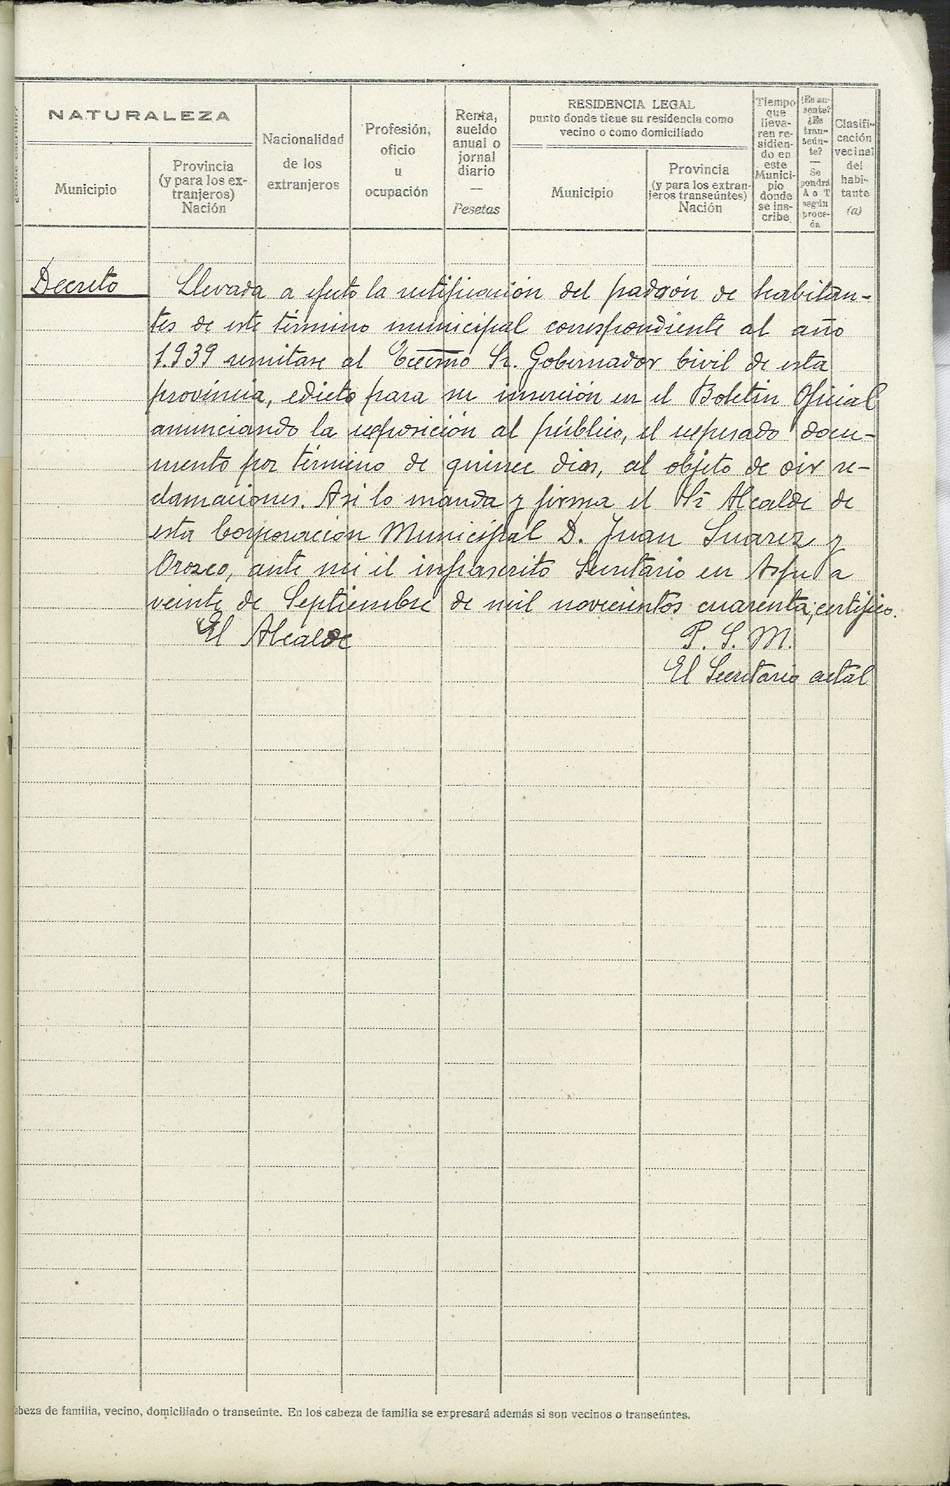 NATURALEZA
Municipio
Provincia
(y para los ex-
tranjeros)
Nación
Nacionalidad
de los
extranjeros
Profesión,
oficio
u
ocupación
Renta,
sueldo
anual o
jornal
diario
—
Pesetas
RESIDENCIA LEGAL
punto donde tiene su residencia como
vecino o como domiciliado
Municipio
Provincia
(y para los extran-
jeros transeúntes)
Nación
Tiempo
que
lleva-
ren re-
sidien-
do en
este
Munici-
pio
donde
se ins-
cribe
¿Es au-
sente?
¿Es
tran-
seún-
te?
—
Se
pondrá
A o T
según
proce-
da
Clasifi-
cación
vecinal
del
habi-
tante
(a)
Decreto
Llevada a efecto la rectificación del padrón de habitan-
tes de este término municipal correspondiente al año
1.939 remitase al Excmo Sr. Gobernador Civil de esta
provincia, edicto para su inserción en el Boletin Oficial
anunciando la exposición al público, el repesado docu-
mento por término de quince dias, al objeto de oir re-
clamaciones. Asi lo manda y firma el Sr Alcalde de
esta Corporación Municipal D. Juan Suarez y
Orozco, ante mi el infrascrito Secretario en a
veinte de Septiembre de mil novecientos cuarenta; certifico.
El Alcalde
P. S. M.
El Secretario actal
abeza de familia, vecino, domiciliado o transeúnte. En los cabeza de familia se expresará además si son vecinos o transeúntes.